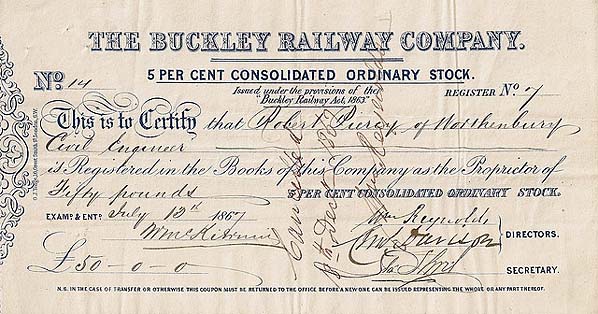 THE BUCKLEY RAILWAY COMPANY.
No. 14
5 PER CENT CONSOLIDATED ORDINARY STOCK.
Issued under the provisions of the
"Buckley Railway Act, 1863"
REGISTER No. 7
This is to Certify that Robert Piercy of Worthenbury
Civil Engineer
is Registered in the Books of this Company as the Proprietor of
Fifty pounds 5 PER CENT CONSOLIDATED ORDINARY STOCK.
EXAMD. & ENTD. July 12th 1867
Wm Reynolds
Davison
DIRECTORS.
£50-0-0
SECRETARY.
N.B. IN THE CASE OF TRANSFER OR OTHERWISE THIS COUPON MUST BE RETURNED TO THE OFFICE BEFORE A NEW ONE CAN BE ISSUED REPRESENTING THE WHOLE OR ANY PART THEREOF.
Cancelled